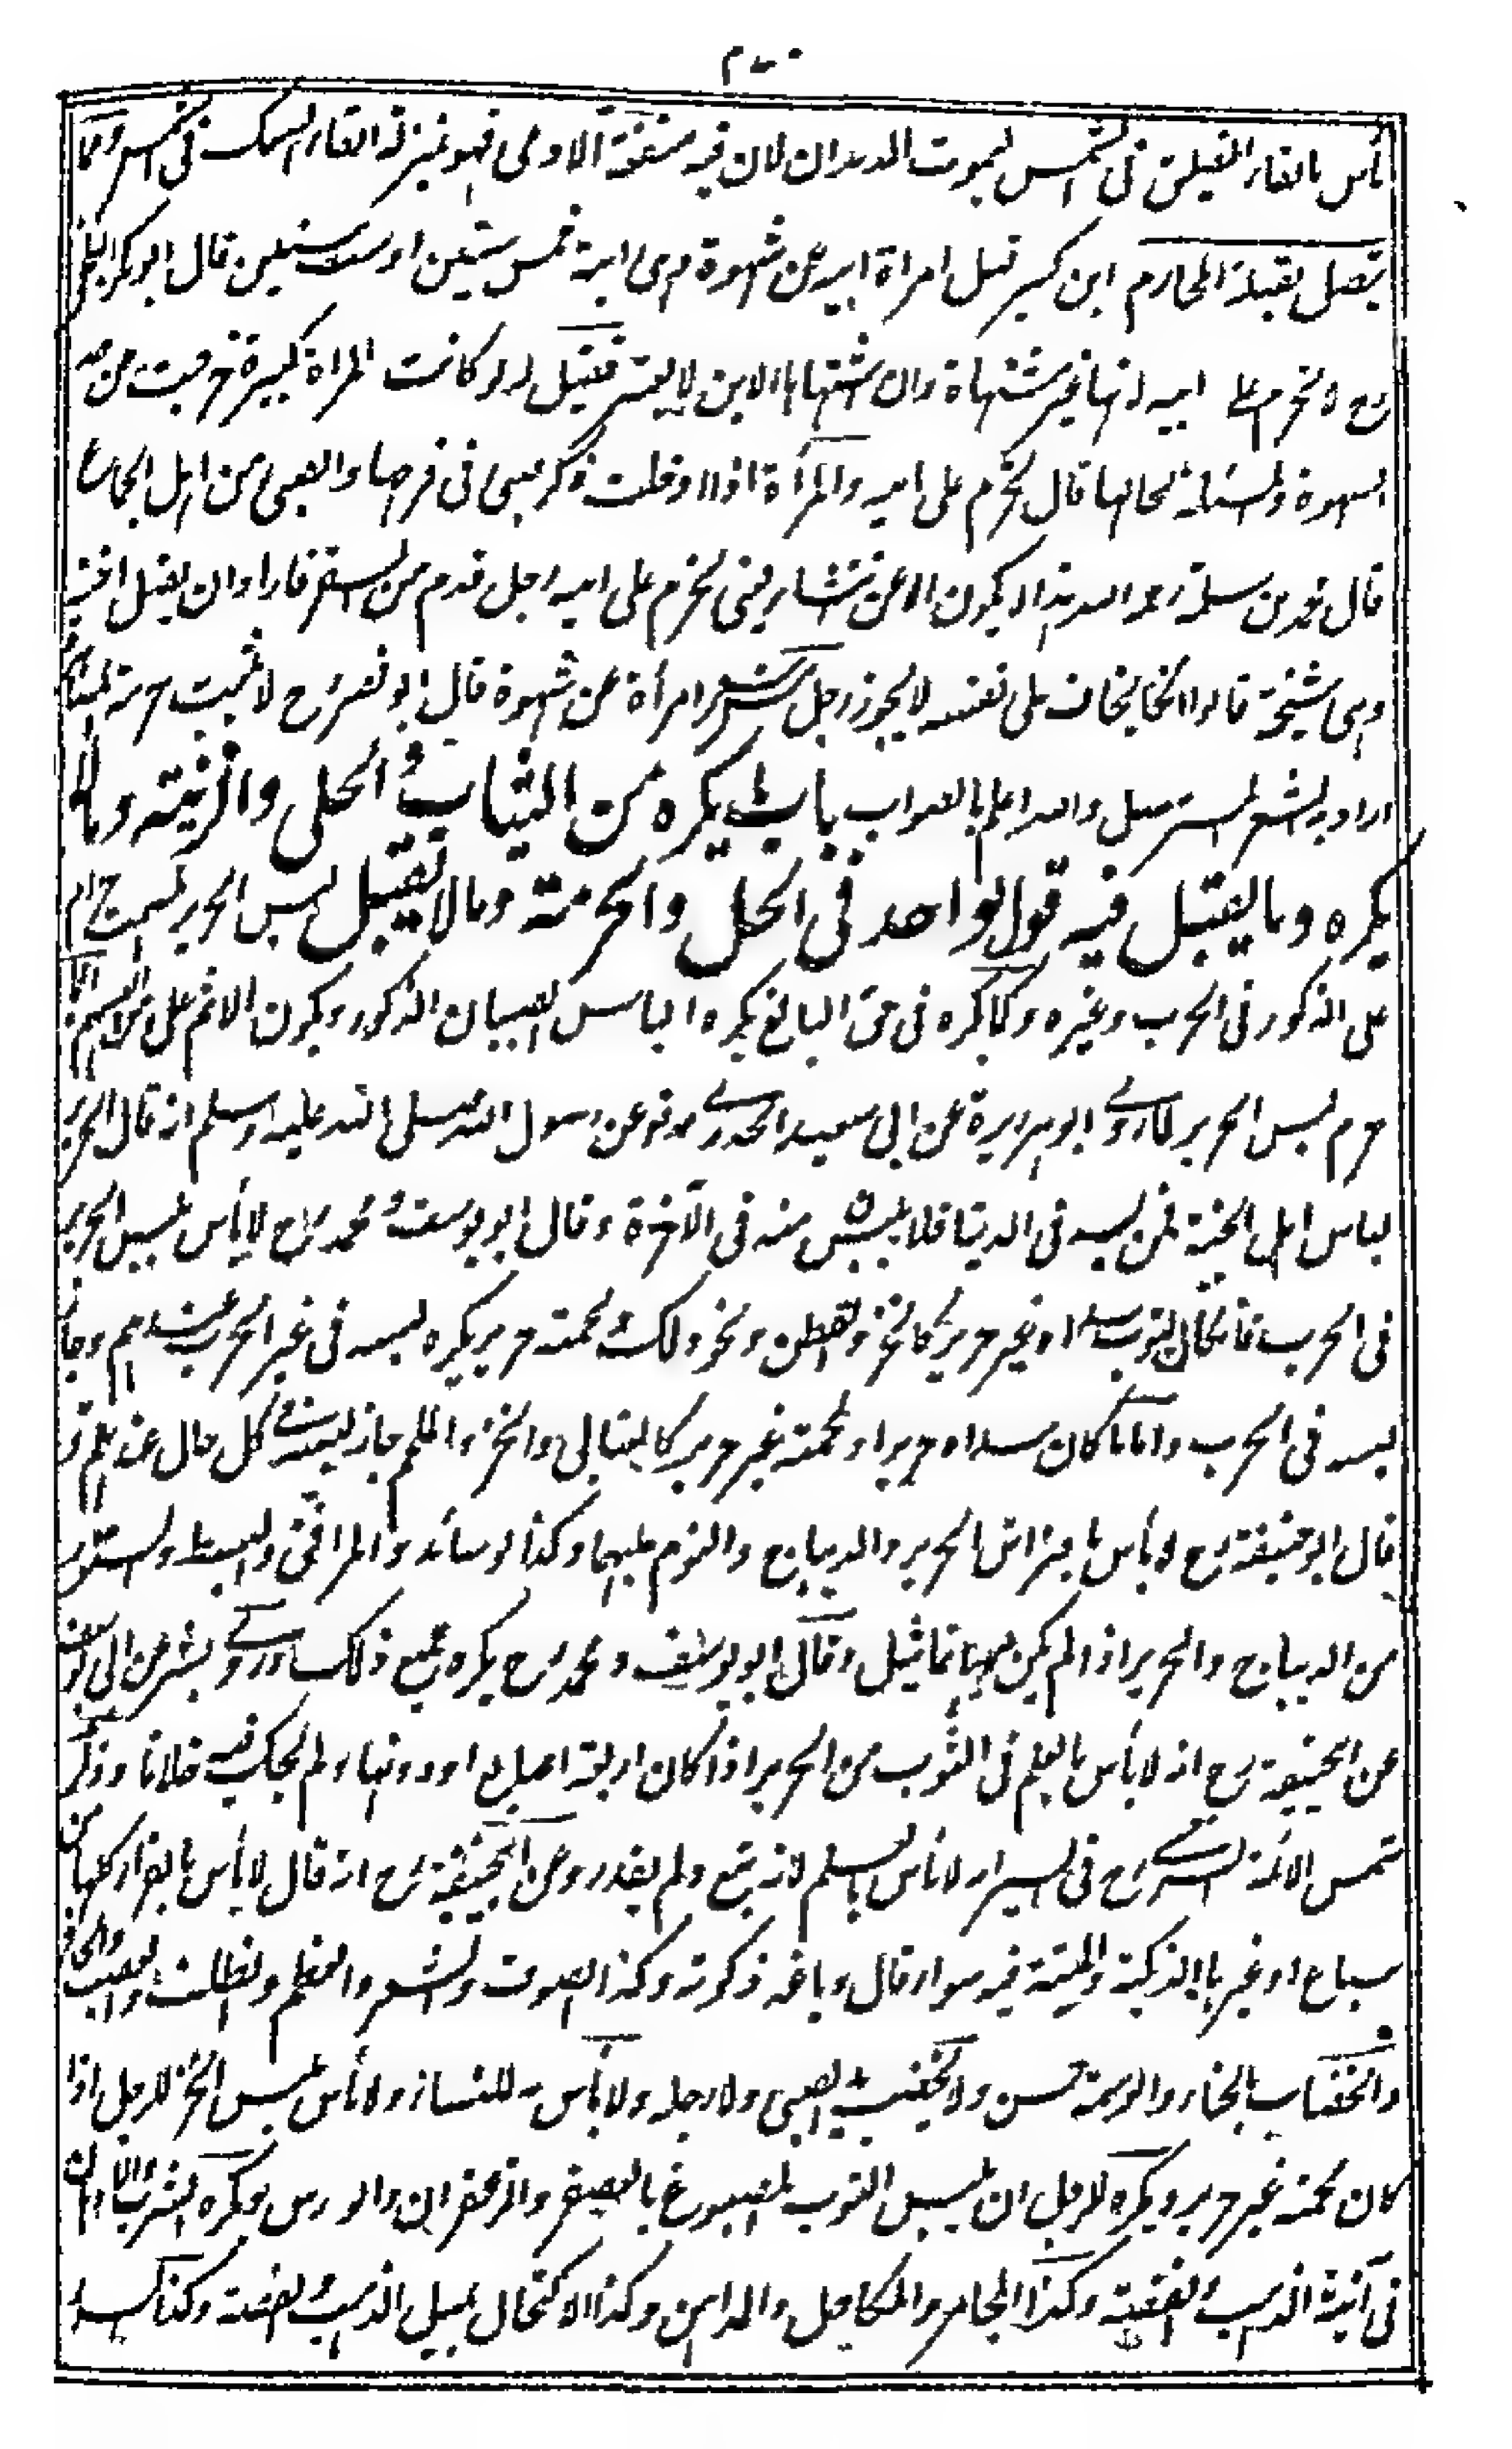 بأس بالقاء الفيلق فى الشمس ليموت الديدان لان فيه منفعة الآدمى فهو بمنزلة القاء السمك فى الشمس ومما
يتصل بقبلة المحارم ابن كبير قبل امرأة ابيه عن شهوة وهى ابنة خمس سنين او ست سنين قال ابو بكر البلخى
رح لا تحرم على ابيه لانها غير مشتهاة وان اشتهاها الابن لا يعتبر فقيل له لو كانت المرأة كبيرة خرجت من حد
الشهوة والمسئلة بحالها قال تحرم على ابيه والمرأة اذا ادخلت ذكر صبى فى فرجها والصبى من اهل الجماع
قال محمد بن سلمة رحمه الله هذا لا يكون الا عن يعنى تحرم على ابيه رجل قدم من السفر فاراد ان يقبل اخته
وهى شيخة قالوا ان كان يخاف على نفسه لا يجوز رجل مس شعر امرأة عن شهوة قال ابو نصر رح لا تثبت حرمة المصاهرة
اراد به الشعر المسترسل والله اعلم بالصواب باب ما يكره من الثياب والحلى والزينة وما لا
يكره وما يقبل فيه قول الواحد فى الحل والحرمة وما لا يقبل لبس الحرير المصمت حرام
على الذكور فى الحرب وغيره وكما كره فى حق البالغ يكره الباس الصبيان الذكور ويكون الاثم على من البسهم انما
حرم لبس الحرير لما روى ابو هريرة عن ابى سعيد الخدرى عن رسول الله صلى الله عليه وسلم انه قال الحرير
لباس اهل الجنة فمن لبسه فى الدنيا فلا يلبس منه فى الآخرة وقال ابو يوسف ومحمد رح لا بأس بلبس الحرير
فى الحرب فان كان الثوب سداه غير حرير كالخز والقطن ونحو ذلك ولحمته حرير يكره لبسه فى غير الحرب عندهم وجاز
لبسه فى الحرب واما ما كان سداه حريرا ولحمته غير حرير كالعتابى والخز والملحم جاز لبسه فى كل حال عندهم
قال ابو حنيفة رح لا بأس بافتراش الحرير والديباج والنوم عليهما وكذا الوسائد والمرافق والبسط والستور
من الديباج والحرير اذا لم يكن فيها تماثيل وقال ابو يوسف ومحمد رح يكره جميع ذلك وروى بشر عن ابى يوسف
عن ابى حنيفة رح انه لا بأس بالعلم فى الثوب من الحرير اذا كان اربعة اصابع او دونها ولم يحك فيه خلافا وذكر
شمس الائمة السرخسى رح فى السير انه لا بأس بالعلم لانه تبع ولم يقدر وعن ابى حنيفة رح انه قال لا بأس بالفراء كلها من
سباع او غيرها الذكية والميتة فيه سواء وقال دباغه ذكوته وكذا الصوف والشعر والعظم والظلف والعصب والحافر
والخضاب بالحناء والوسمة حسن ولا يخضب يد الصبى ولا رجله ولا بأس به للنساء ولا بأس بلبس الخز للرجل اذا
كان لحمته غير حرير ويكره للرجل ان يلبس الثوب المصبوغ بالعصفر والزعفران والورس ويكره الشرب والادهان
فى آنية الذهب والفضة وكذا المجامر والمكاحل والمداهن وكذا الاكتحال بميل الذهب والفضة وكذا